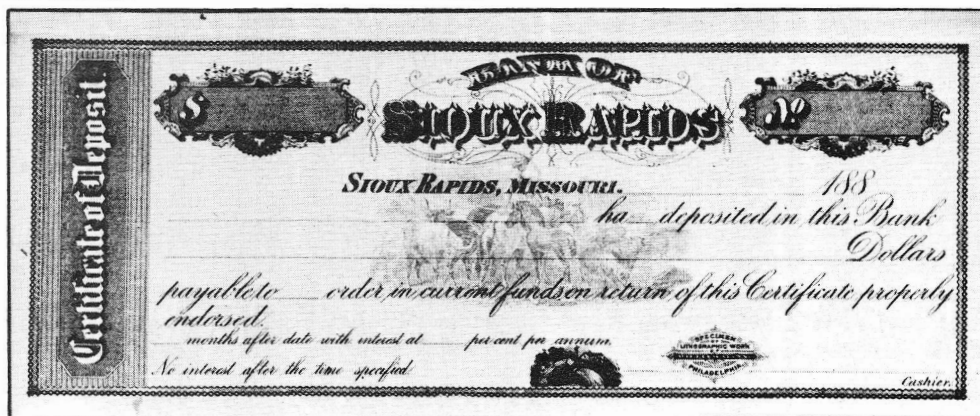 Certificate of Deposit.
$
BANK OF
SIOUX RAPIDS
No
SIOUX RAPIDS, MISSOURI. 188
ha deposited in this Bank
Dollars
payable to order in current funds on return of this Certificate properly
endorsed.
months after date with interest at per cent per annum.
No interest after the time specified.
SPECIMEN
OF
LITHOGRAPHIC WORK
PHILADELPHIA
Cashier.